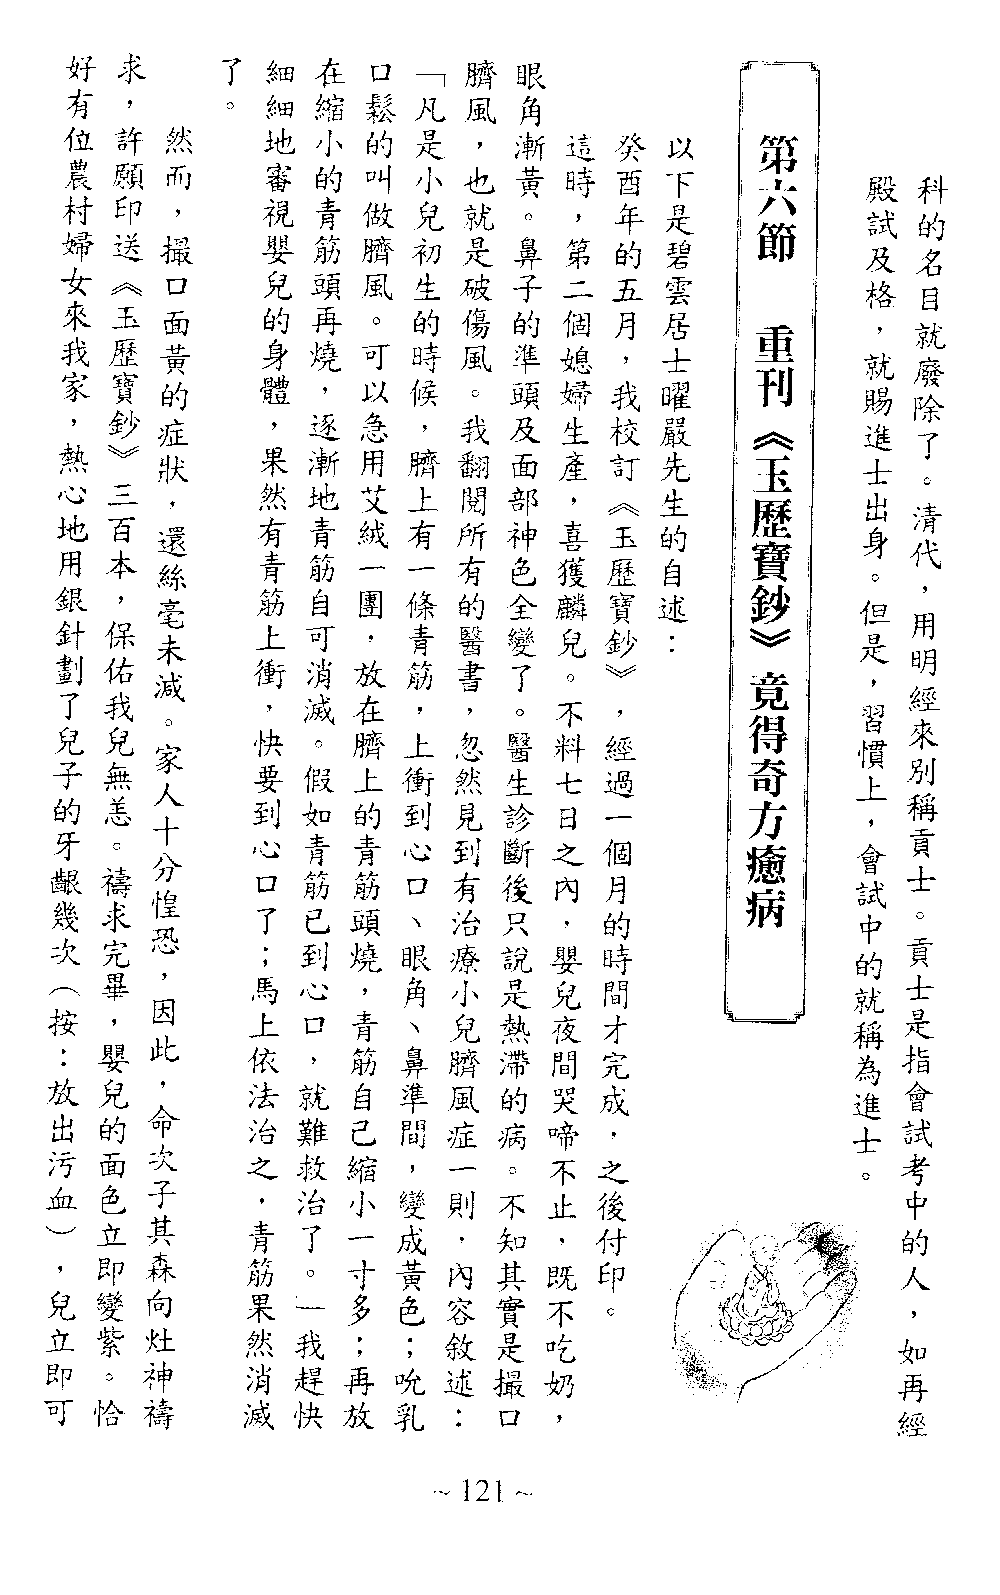 科的名目就廢除了。清代，用明經來別稱貢士。貢士是指會試考中的人，如再經
殿試及格，就賜進士出身。但是，習慣上，會試中的就稱為進士。
第六節　重刊《玉歷寶鈔》竟得奇方癒病
以下是碧雲居士曜嚴先生的自述：
癸酉年的五月，我校訂《玉歷寶鈔》，經過一個月的時間才完成，之後付印。
這時，第二個媳婦生產，喜獲麟兒。不料七日之內，嬰兒夜間哭啼不止，既不吃奶，
眼角漸黃。鼻子的準頭及面部神色全變了。醫生診斷後只說是熱滯的病。不知其實是撮口
臍風，也就是破傷風。我翻閱所有的醫書，忽然見到有治療小兒臍風症一則，內容敘述：
「凡是小兒初生的時候，臍上有一條青筋，上衝到心口、眼角、鼻準間，變成黃色；吮乳
口鬆的叫做臍風。可以急用艾絨一團，放在臍上的青筋頭燒，青筋自己縮小一寸多；再放
在縮小的青筋頭再燒，逐漸地青筋自可消滅。假如青筋已到心口，就難救治了。」我趕快
細細地審視嬰兒的身體，果然有青筋上衝，快要到心口了；馬上依法治之，青筋果然消滅
了。
然而，撮口面黃的症狀，還絲毫未減。家人十分惶恐，因此，命次子其森向灶神禱
求，許願印送《玉歷寶鈔》三百本，保佑我兒無恙。禱求完畢，嬰兒的面色立即變紫。恰
好有位農村婦女來我家，熱心地用銀針劃了兒子的牙齦幾次（按：放出污血），兒立即可
~ 121 ~